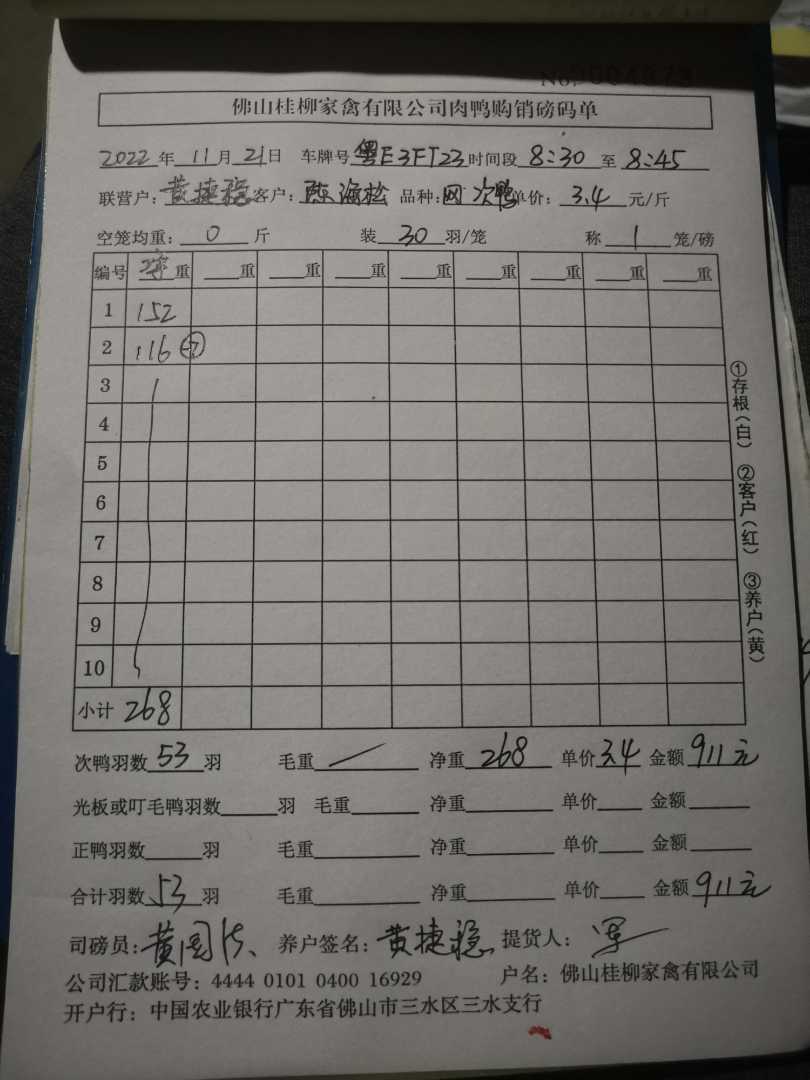 No.
佛山桂柳家禽有限公司肉鸭购销磅码单
2022年11月21日 车牌号粤E3FT23时间段8:30至8:45
联营户:黄捷稳客户:陈海松 品种:网次鸭单价:3.4元/斤
空笼均重:0斤 装30羽/笼 称1笼/磅
编号 重 重 重 重 重 重 重 重 重
1 152
2 116 -7
3
4
5
6
7
8
9
10
小计 268
①存根(白) ②客户(红) ③养户(黄)
次鸭羽数53羽 毛重 净重268 单价3.4 金额911元
光板或叮毛鸭羽数 羽 毛重 净重 单价 金额
正鸭羽数 羽 毛重 净重 单价 金额
合计羽数53羽 毛重 净重 单价 金额911元
司磅员:黄 养户签名:黄捷稳 提货人:
公司汇款账号:4444 0101 0400 16929 户名:佛山桂柳家禽有限公司
开户行:中国农业银行广东省佛山市三水区三水支行